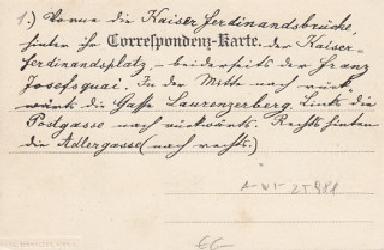 1.) Vorne die Kaiser Ferdinandsbrücke,
hinter ihr Correspondenz-Karte. der Kaiser-
ferdinandsplatz, beiderseits der Franz
Josefsquai. In der Mitte nach rück-
wärts die Gasse Laurenzerberg. Links die
Postgasse nach rückwärts. Rechts hinten
die Adlergasse (nach rechts.)